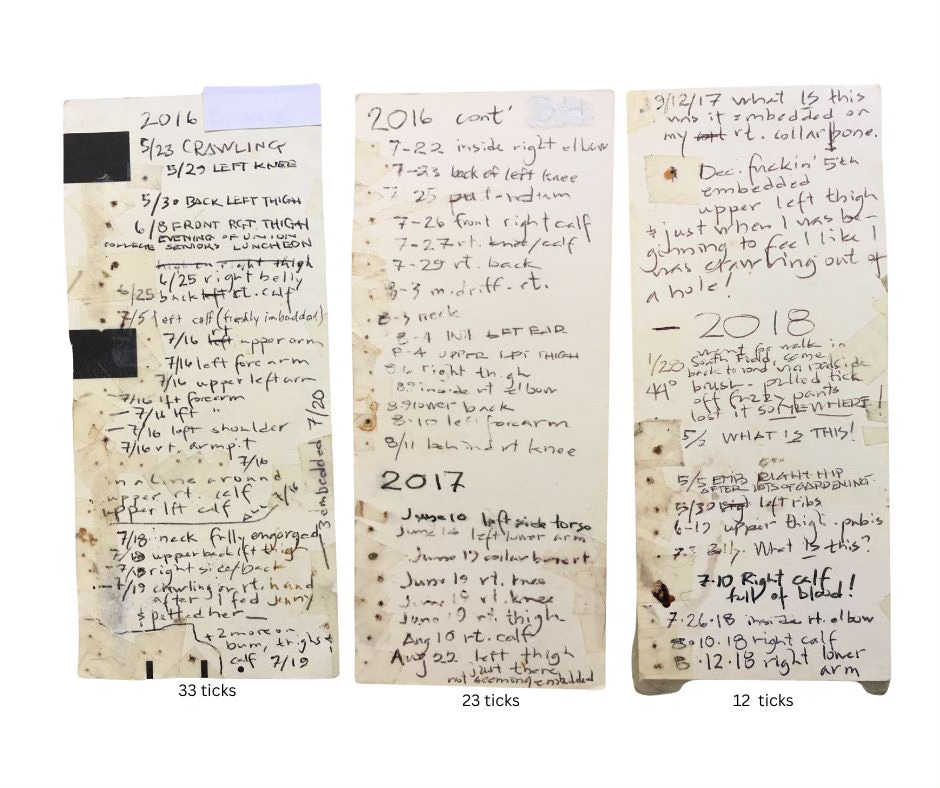 2016
5/23 CRAWLING
5/29 LEFT KNEE
5/30 BACK LEFT THIGH
6/8 FRONT RGT THIGH
EVENING OF UNION
COLLEGE SENIORS LUNCHEON
high on right thigh
6/25 right belly
6/25 back left rt. calf
7/5 left calf (freshly imbedded)
7/16 left rt upper arm
7/16 left forearm
7/16 upper left arm
7/16 lft forearm
7/16 lft "
7/16 left shoulder
7/16 rt. armpit
7/16
in a line around
upper rt. calf
upper lft calf
7/16
3 embedded 7/20
7/18: neck fully engorged
7/18 upper back left thigh
7/18 right side/back
7/19 crawling on rt. hand
after I fed Jenny
& petted her
+ 2 more on
bum, thigh &
calf 7/19
33 ticks
2016 cont'
7-22 inside right elbow
7-23 back of left knee
7 25
7-26 front right calf
7-27 rt. knee/calf
7-29 rt. back
8-3 midriff-rt.
8-3 neck
8-4 LEFT EAR
8-4 UPPER LEFT THIGH
86 right thigh
89 inside rt elbow
89 lower back
8-10 left forearm
8/11 behind rt knee
2017
June 10 left side torso
June 16 left lower arm
June 19 collarbone rt.
June 19 rt. knee
June 19 rt. knee
June 19 rt thigh
Aug 10 rt. calf
Aug 22 left thigh
just there
not seeming embedded
23 ticks
9/12/17 what IS this
was it embedded on
my rt. collar bone.
Dec. fuckin' 5th
embedded
upper left thigh
& just when I was be-
ginning to feel like I
was crawling out of
a hole!
2018
1/20 went for walk in
South Field, came
back to road via roadside
44° brush - pulled tick
off frizzy pants
lost it SOMEWHERE!
5/2 WHAT IS THIS!
5/5 EMB RIGHT HIP
AFTER LOTS OF GARDENING
5/30 left ribs
6-19 upper thigh-pubis
7.3 Belly. What IS this?
7.10 Right calf
full of blood!
7.26.18 inside rt. elbow
8.10.18 right calf
8.12.18 right lower
arm
12 ticks